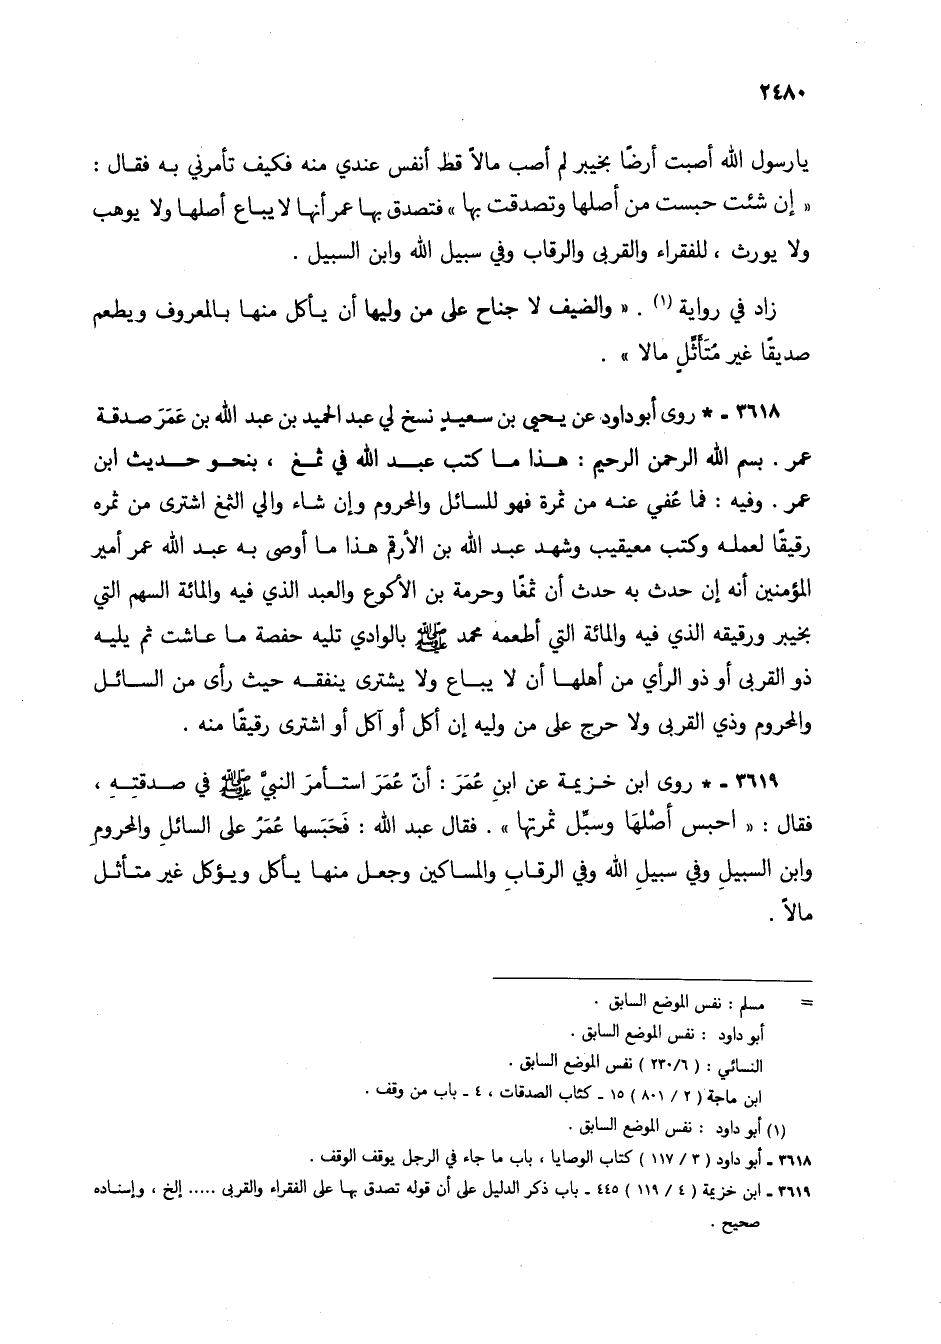 ٢٤٨٠
يارسول الله أصبت أرضًا بخيبر لم أصب مالاً قط أنفس عندي منه فكيف تأمرني به فقال :
« إن شئت حبست من أصلها وتصدقت بها » فتصدق بها عمر أنها لا يباع أصلها ولا يوهب
ولا يورث ، للفقراء والقربى والرقاب وفي سبيل الله وابن السبيل .
زاد في رواية (١) . « والضيف لا جناح على من وليها أن يأكل منها بالمعروف ويطعم
صديقًا غير مُتَأَثِّلٍ مالا » .
٣٦١٨ - * روى أبو داود عن يحيى بن سعيدٍ نسخ لي عبد الحميد بن عبد الله بن عَمَرَ صدقة
عمر . بسم الله الرحمن الرحيم : هذا ما كتب عبد الله في ثمغ ، بنحو حديث ابن
عمر . وفيه : فما عُفي عنه من ثمرة فهو للسائل والمحروم وإن شاء والي الثمغ اشترى من ثمره
رقيقًا لعمله وكتب معيقيب وشهد عبد الله بن الأرقم هذا ما أوصى به عبد الله عمر أمير
المؤمنين أنه إن حدث به حدث أن ثمغًا وحرمة بن الأكوع والعبد الذي فيه والمائة السهم التي
بخيبر ورقيقه الذي فيه والمائة التي أطعمه محمد ﷺ بالوادي تليه حفصة ما عاشت ثم يليه
ذو القربى أو ذو الرأي من أهلها أن لا يباع ولا يشترى ينفقه حيث رأى من السائل
والمحروم وذي القربى ولا حرج على من وليه إن أكل أو آكل أو اشترى رقيقًا منه .
٣٦١٩ - * روى ابن خزيمة عن ابنِ عُمَرَ : أنّ عُمَرَ استأمرَ النبيَّ ﷺ في صدقتِهِ ،
فقال : « احبس أصْلهَا وسبِّل ثمرتها » . فقال عبد الله : فَحَبَسها عُمَرُ على السائلِ والمحرومِ
وابن السبيلِ وفي سبيلِ الله وفي الرقابِ والمساكين وجعل منها يأكل ويؤكل غير متأثل
مالاً .
= مسلم : نفس الموضع السابق .
أبو داود : نفس الموضع السابق .
النسائي : ( ٢٣٠/٦ ) نفس الموضع السابق .
ابن ماجة ( ٢ / ٨٠١ ) ١٥ - كتاب الصدقات ، ٤ - باب من وقف .
(١) أبو داود : نفس الموضع السابق .
٣٦١٨ - أبو داود ( ٣ / ١١٧ ) كتاب الوصايا ، باب ما جاء في الرجل يوقف الوقف .
٣٦١٩ - ابن خزيمة ( ٤ / ١١٩ ) ٤٤٥ - باب ذكر الدليل على أن قوله تصدق بها على الفقراء والقربى ..... إلخ ، وإسناده
صحيح .